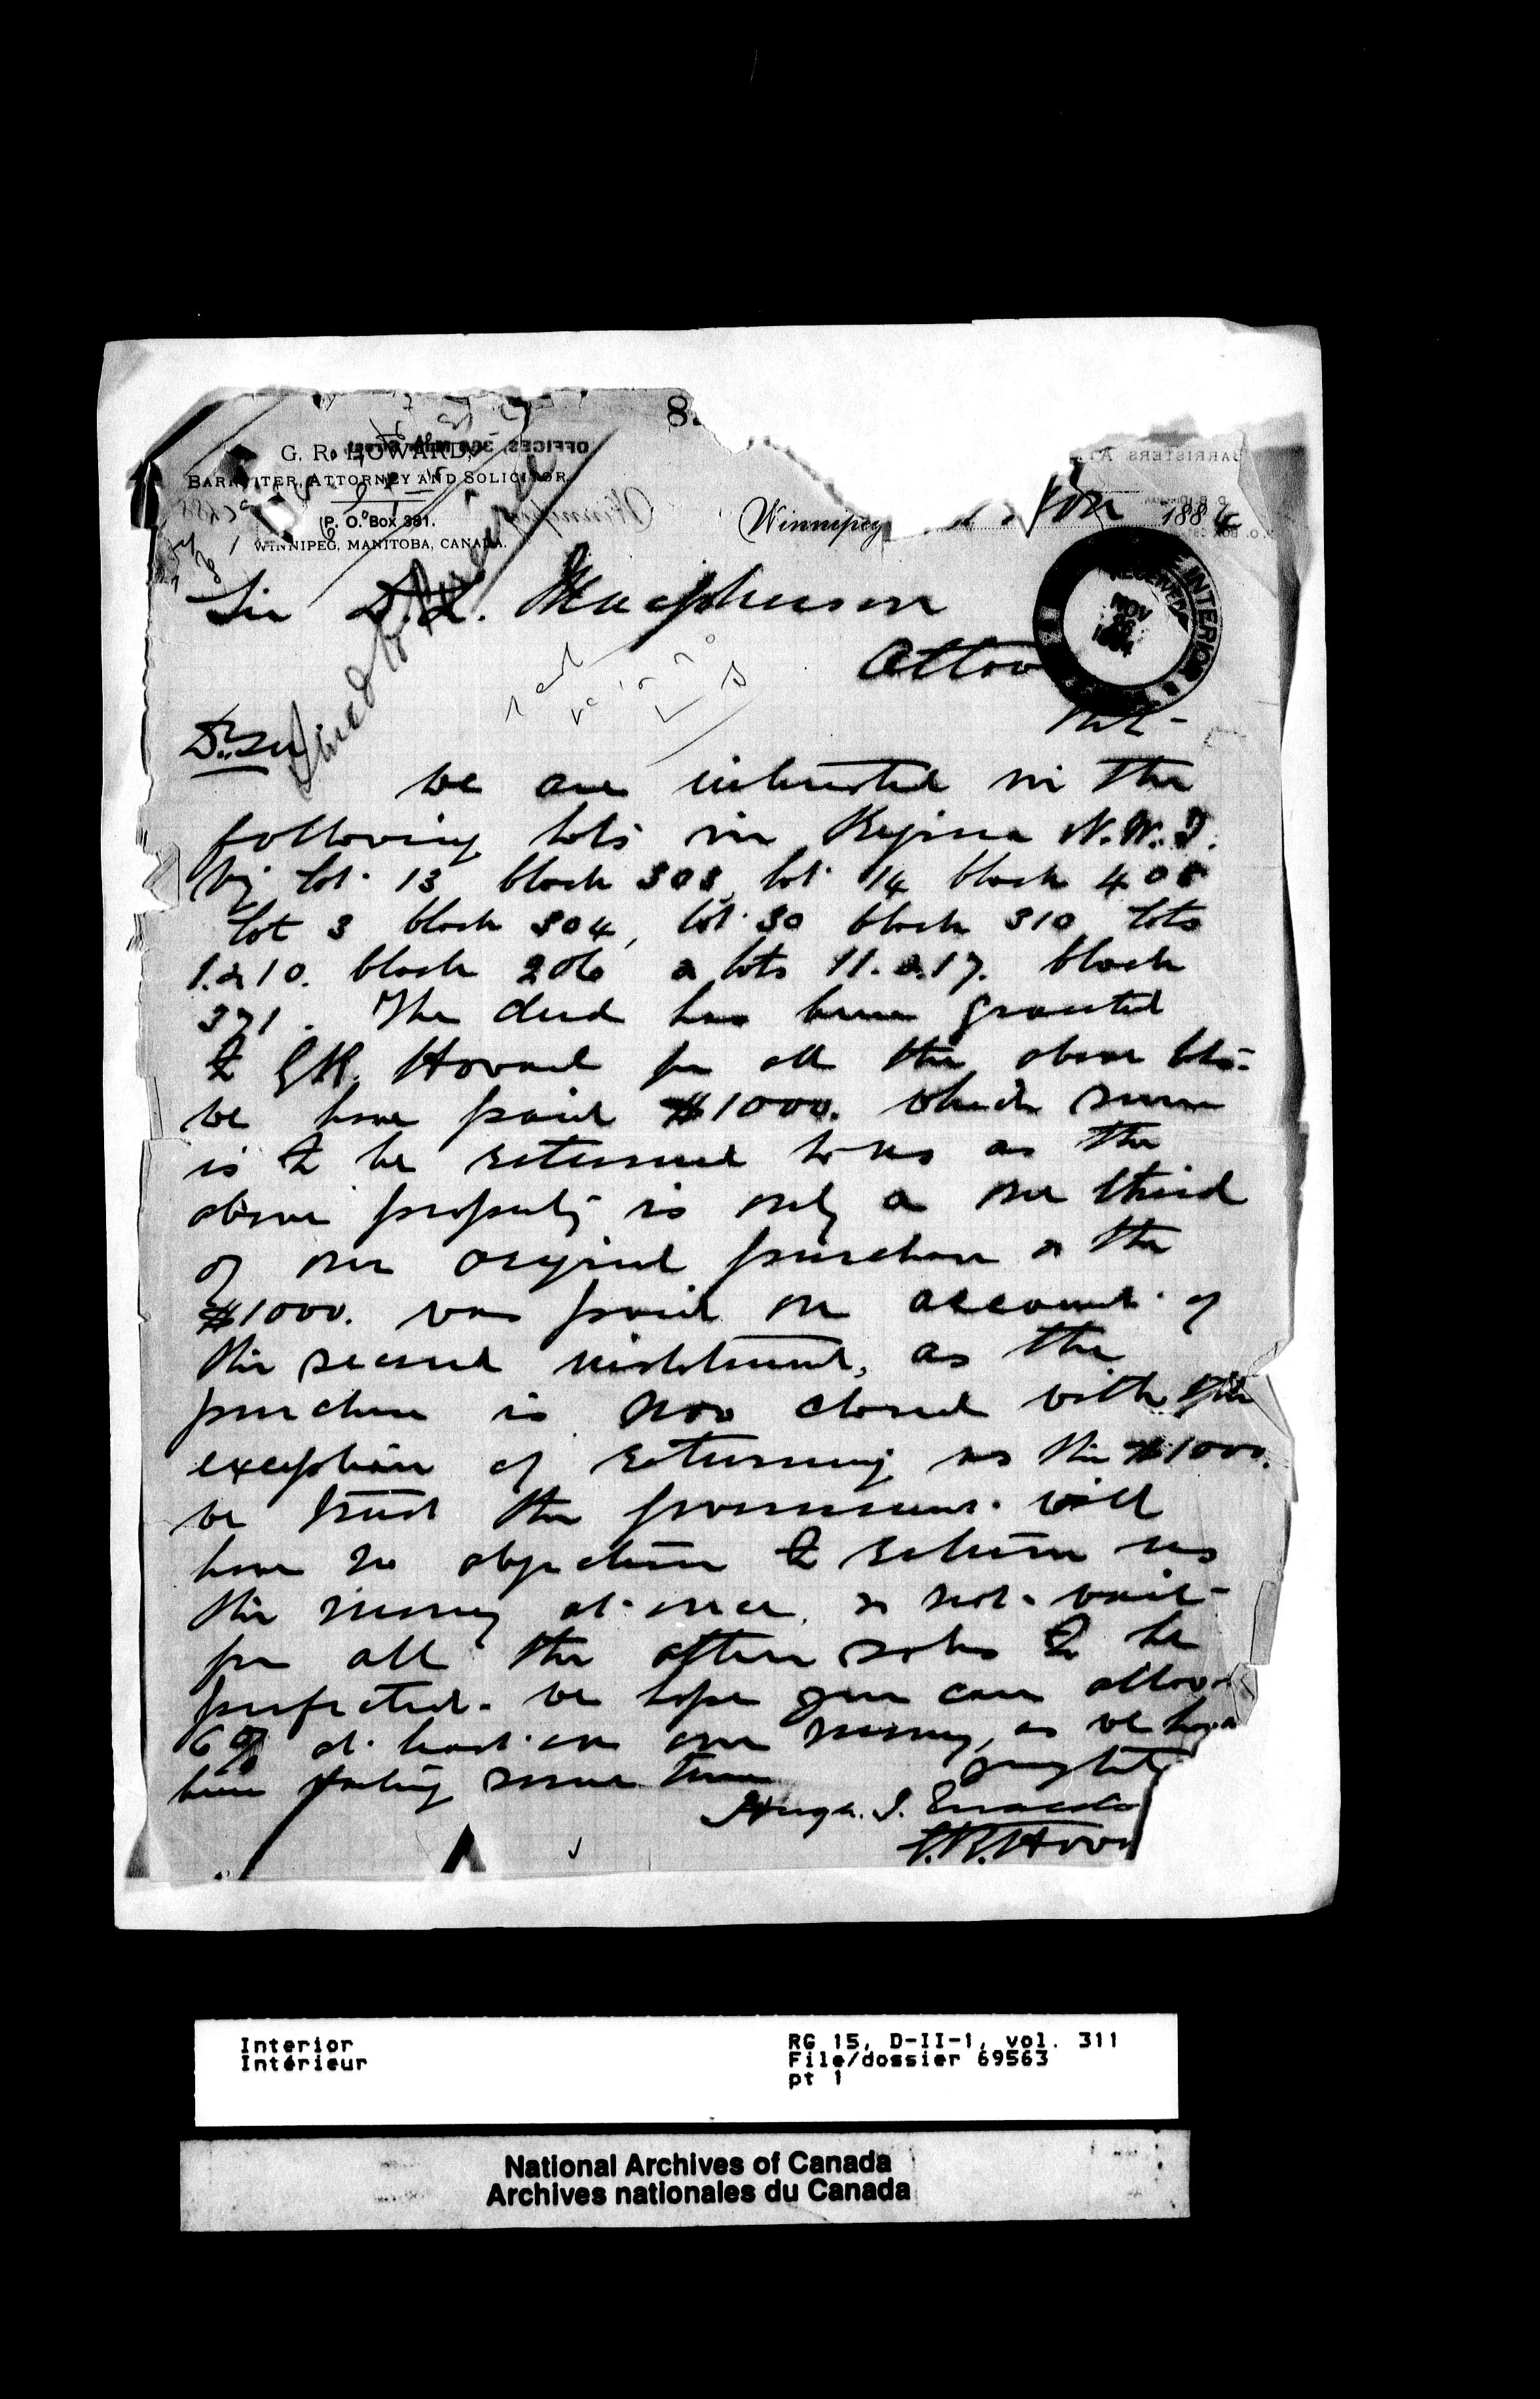 8
G. R. HOWARD,
BARRISTER, ATTORNEY AND SOLICITOR,
P. O. Box 391.
WINNIPEG, MANITOBA, CANADA.
Winnipeg Nov 1884
INTERIOR
RECEIVED
NOV
1884
Sir D. L. Macpherson
Ottow
Dr. Sir
We are interested in the
following lots in Regina N.W.T.
viz lot 13 block 308, lot 14 block 408
lot 3 block 304, lot 30 block 310 lots
1. & 10. block 206 & lots 11. & 17. block
371. The deed has been granted
to G.R. Howard for all the above lots-
we have paid $1000. which sum
is to be returned to us as the
above property is only a one third
of our original purchase & the
$1000. was paid on account of
the second instalment, as the
purchase is now closed with the
exception of returning us the $1000.
we trust the government will
have no objection to return us
the money at once & not wait
for all the other sales to be
perfected. We hope you can allow
6% at least on our money, as we have
been waiting some time
Hugh. J.
G.R. How
Interior
Intérieur
RG 15, D-II-1, vol. 311
File/dossier 69563
pt 1
National Archives of Canada
Archives nationales du Canada